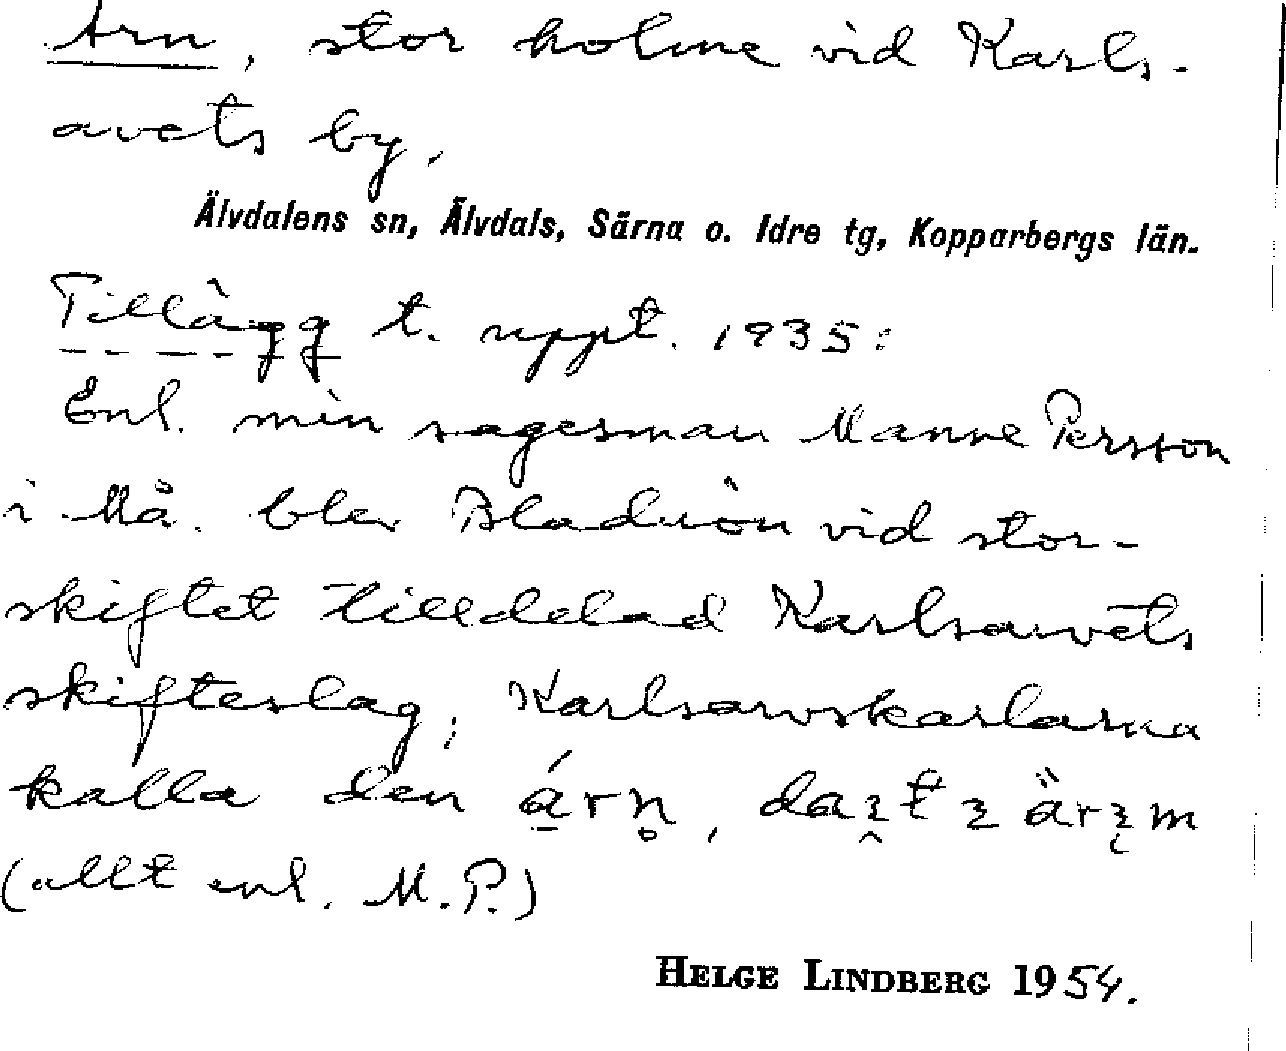 Arn, stor holme vid Karls-
avets by.
Älvdalens sn, Älvdals, Särna o. Idre tg, Kopparbergs län.
Tillägg t. uppt. 1935:
Enl. min sagesman Manne Persson
i Må. blev vid stor-
skiftet tilldelad Karlsarvets
skifteslag; Karlsarvskarlarna
kalla den
(allt enl. M.P.)
HELGE LINDBERG 1954.